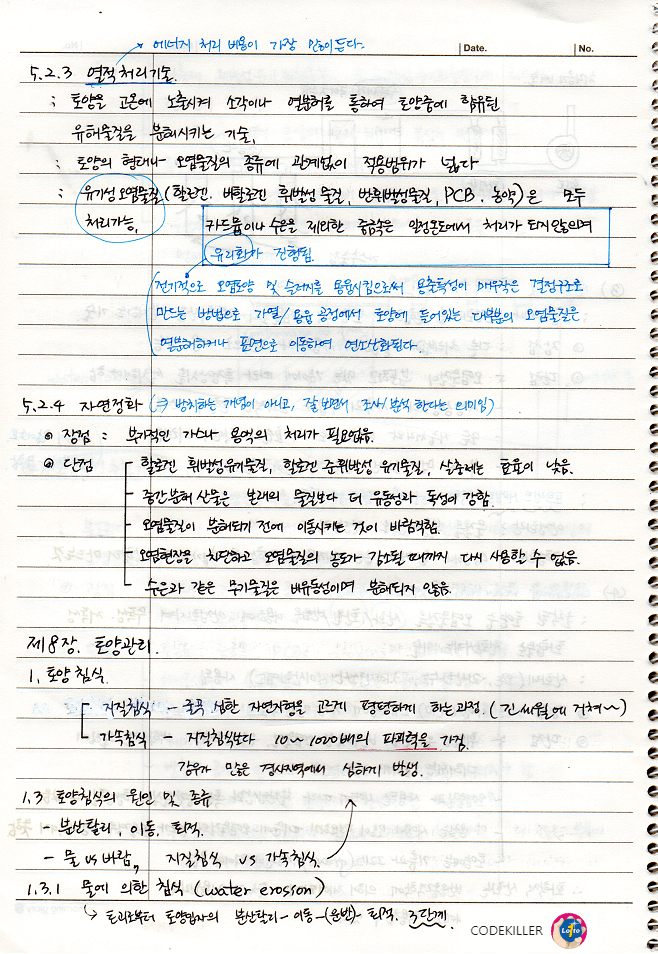 → 에너지 처리 비용이 가장 많이 든다.
Date. No.
5.2.3 열적처리기술.
: 토양을 고온에 노출시켜 소각이나 열분해를 통하여 토양중에 함유된
유해물질을 분해시키는 기술.
: 토양의 형태나 오염물질의 종류에 관계없이 적용범위가 넓다
: 유기성 오염물질 (할로겐. 비할로겐 휘발성 물질, 반휘발성물질, PCB. 농약)은 모두
처리가능.
카드뮴이나 수은을 제외한 중금속은 일정온도에서 처리가 되지않으며
유리화가 진행됨.
전기적으로 오염토양 및 슬러지를 용융시킴으로써 용출특성이 매우작은 결정구조로
만드는 방법으로 가열/용융 공정에서 토양에 들어있는 대부분의 오염물질은
열분해하거나 표면으로 이동하여 연소산화된다.
5.2.4 자연정화 (⇒ 방치하는 개념이 아니고, 잘 보면서 조사/분석 한다는 의미임)
⊙ 장점 : 부가적인 가스나 용액의 처리가 필요없음.
⊙ 단점 - 할로겐 휘발성유기물질, 할로겐 준휘발성 유기물질, 살충제는 효율이 낮음.
- 중간분해 산물은 본래의 물질보다 더 유동성과 독성이 강함.
- 오염물질이 분해되기 전에 이동시키는 것이 바람직함.
- 오염현장을 차단하고 오염물질의 농도가 감소될 때까지 다시 사용할 수 없음.
- 수은과 같은 무기물질은 비유동성이며 분해되지 않음.
제8장. 토양관리.
1. 토양 침식.
- 지질침식 - 굴곡 심한 자연지형을 고르게 평탄하게 하는과정. (긴세월에 거쳐~)
- 가속침식 - 지질침식보다 10~1020배의 파괴력을 가짐.
강우가 많은 경사지역에서 심하게 발생.
1.3 토양침식의 원인 및 종류
- 분산탈리, 이동, 퇴적.
- 물 vs 바람, 지질침식 vs 가속침식.
1.3.1 물에 의한 침식 (water erosson)
↳ 토괴로부터 토양입자의 분산탈리-이동-(운반)-퇴적. 3단계.
CODEKILLER
Lotto